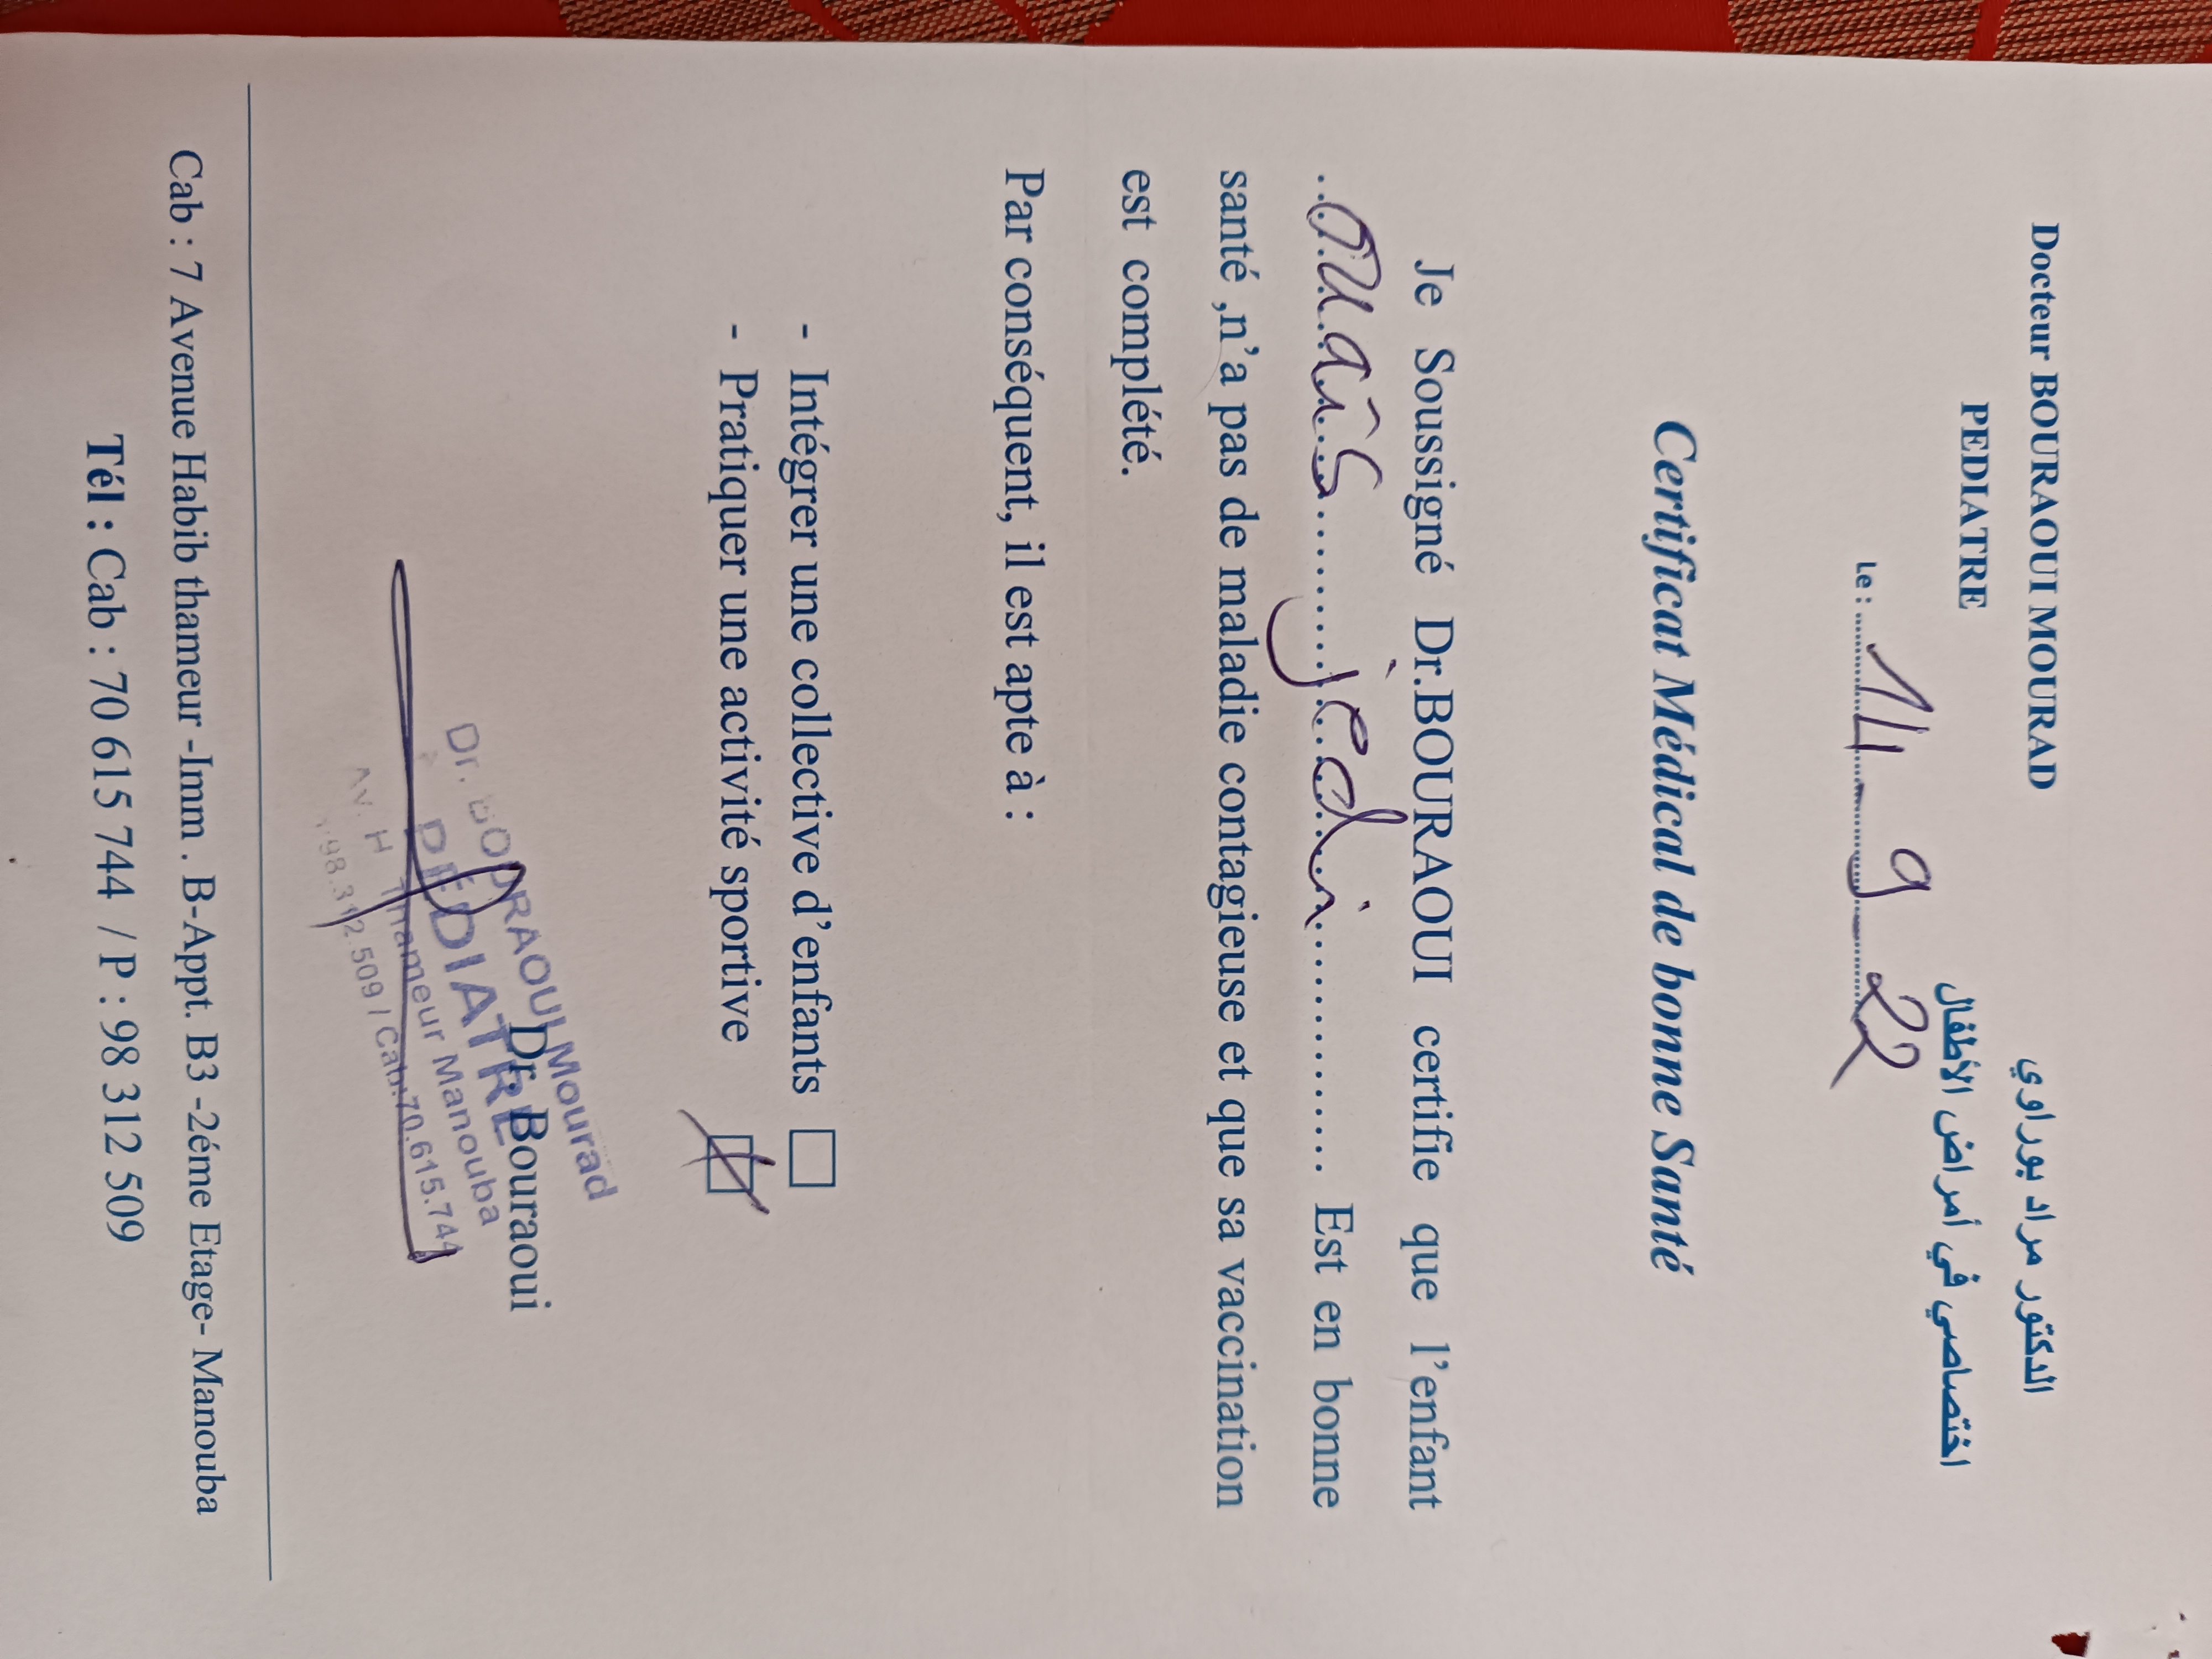 Docteur BOURAOUI MOURAD
الدكتور مراد بوراوي
PEDIATRE
اختصاصي في أمراض الأطفال
Le : 14 9 22
Certificat Médical de bonne Santé
Je Soussigné Dr.BOURAOUI certifie que l'enfant
...Ouaîs.........jedi............... Est en bonne
santé ,n'a pas de maladie contagieuse et que sa vaccination
est complété.
Par conséquent, il est apte à :
- Intégrer une collective d'enfants
- Pratiquer une activité sportive
Dr Bouraoui
Dr. BOURAOUI Mourad
PEDIATRE
Av. H Thameur Manouba
98.312.509 / Cab:70.615.744
Cab : 7 Avenue Habib thameur -Imm . B-Appt. B3 -2éme Etage- Manouba
Tél : Cab : 70 615 744 / P : 98 312 509